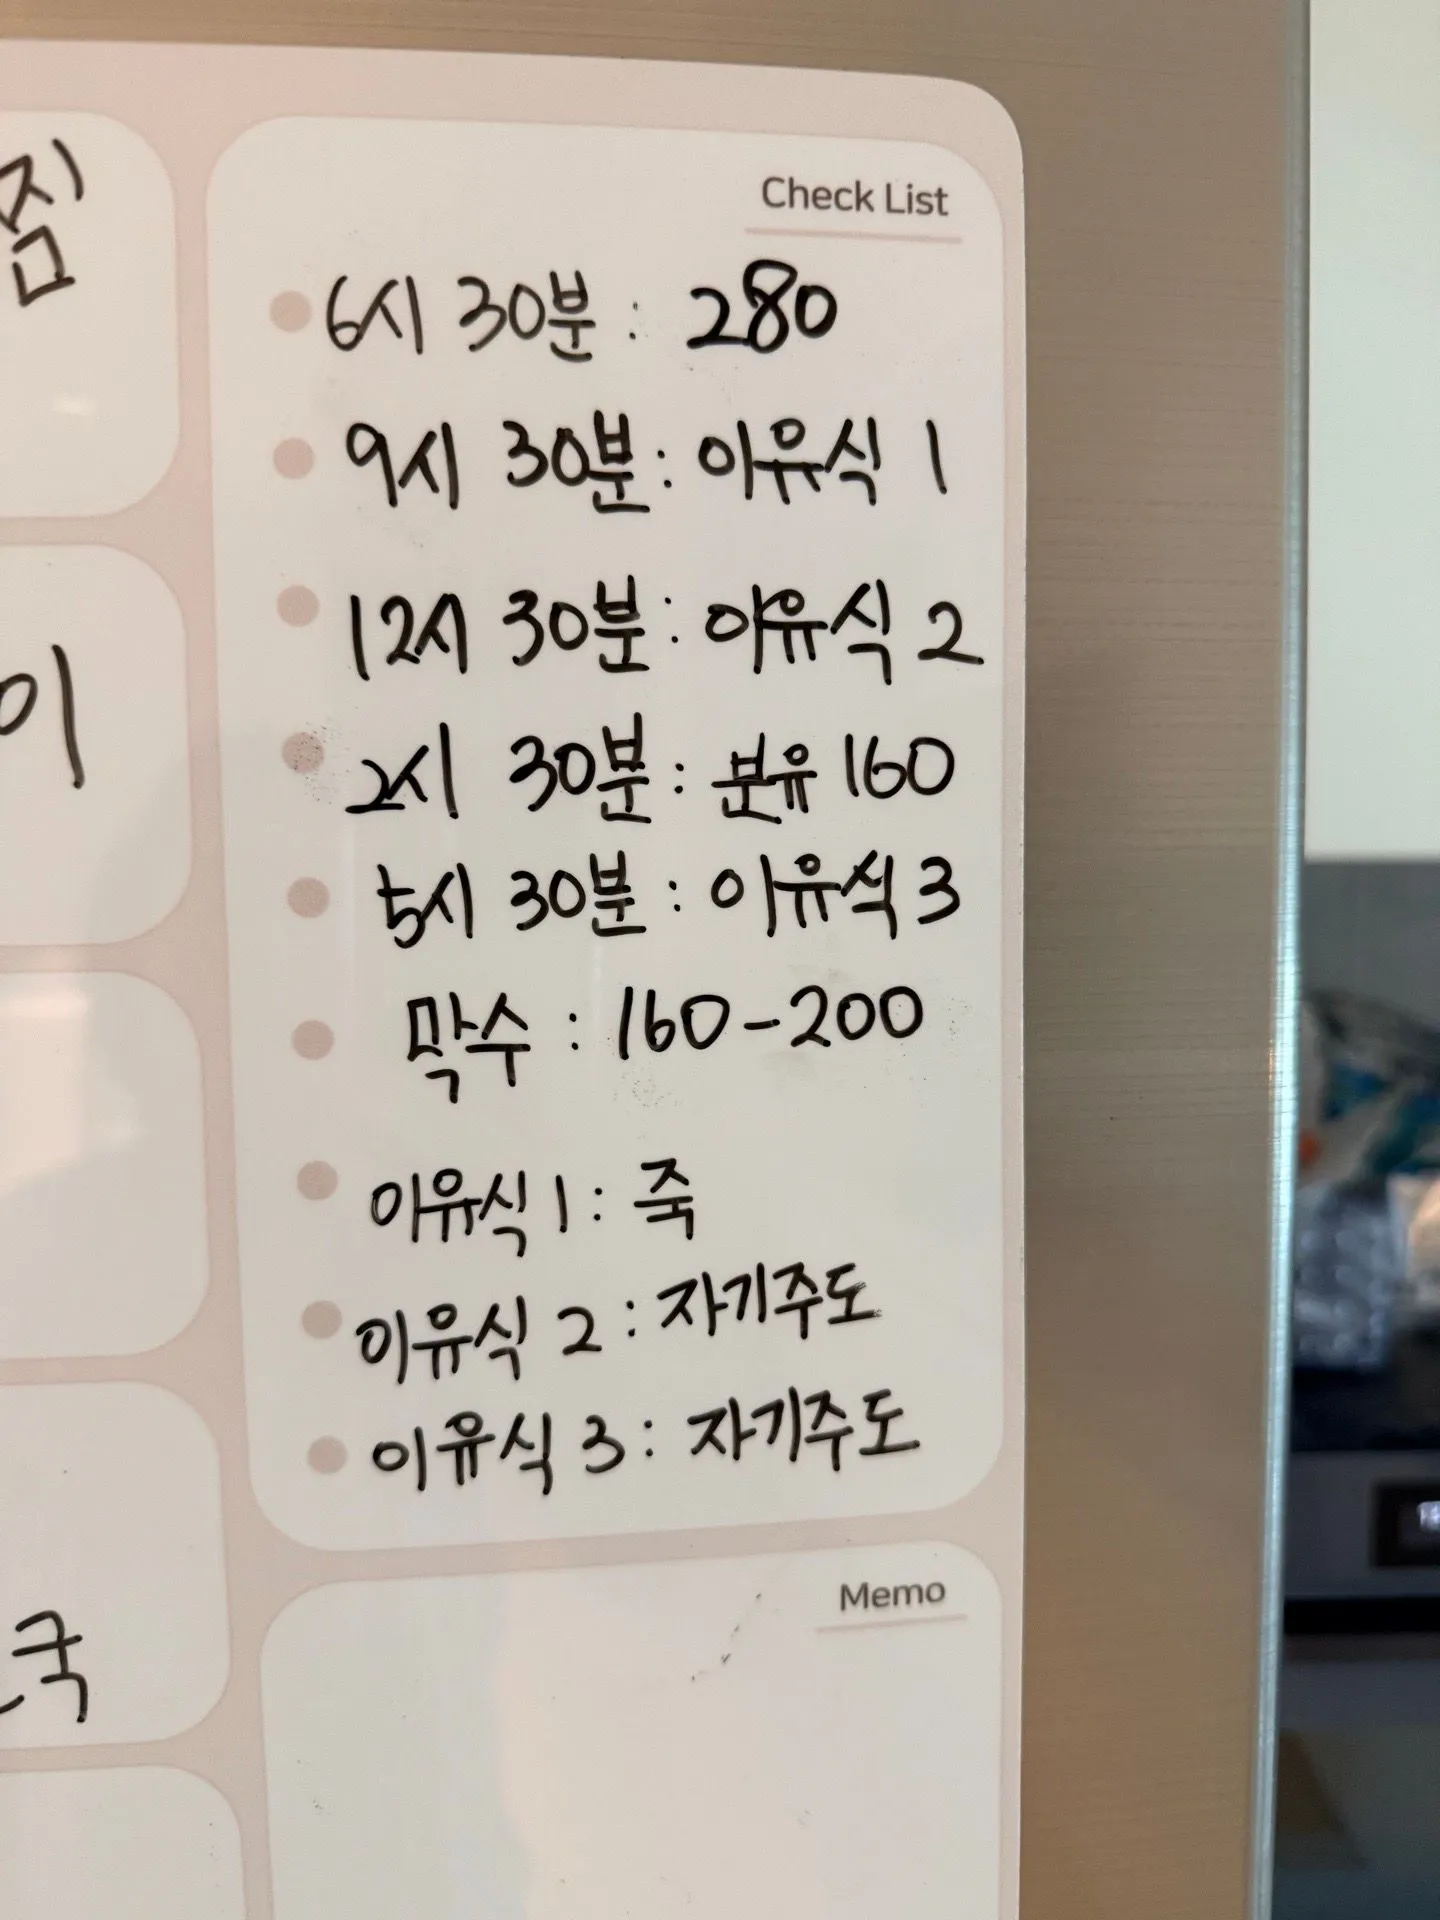 짐
Check List
6시 30분 : 280
9시 30분 : 이유식 1
12시 30분 : 이유식 2
이
2시 30분 : 분유 160
5시 30분 : 이유식 3
막수 : 160-200
이유식 1 : 죽
이유식 2 : 자기주도
이유식 3 : 자기주도
Memo
국